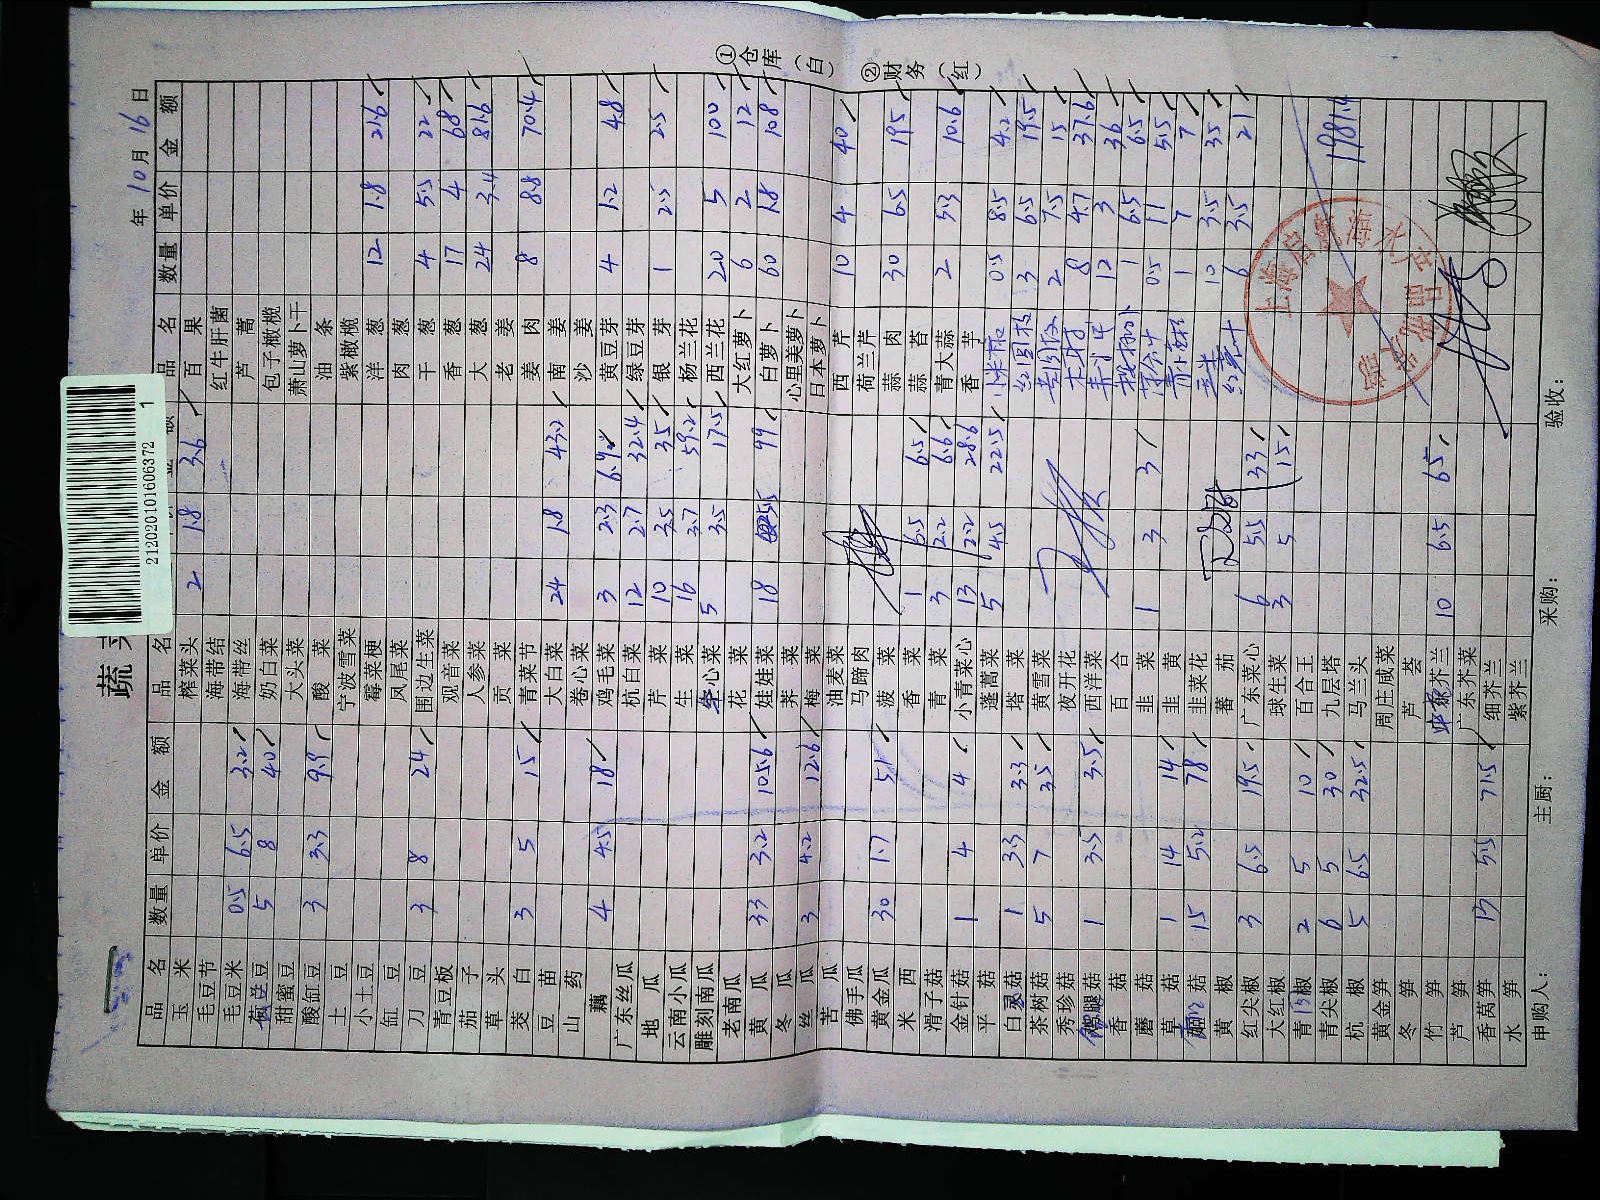 蔬
212020101606372 1
年 10月16日
品名 数量 单价 金额 品名 额 品名 数量 单价 金额
玉米 榨菜头 2 1.8 3.6 百果
毛豆节 海带结 红牛肝菌
毛豆米 0.5 6.5 3.2 海带丝 芦蒿
豆 5 8 40 奶白菜 包子橄榄
甜蜜豆 大头菜 萧山萝卜干
酸缸豆 3 3.3 9.9 酸菜 油条
土豆 宁波雪菜 紫橄榄
小土豆 霉菜梗 洋葱 12 1.8 21.6
缸豆 凤尾菜 肉葱
刀豆 3 8 24 围边生菜 干葱 4 5.5 22
青豆板 观音菜 香葱 17 4 68
茄子 人参菜 大葱 24 3.4 81.6
草头 贡菜 老姜
茭白 3 5 15 青菜节 姜肉 8 8.8 70.4
豆苗 大白菜 24 1.8 43.2 南姜
山药 卷心菜 沙姜
藕 4 4.5 18 鸡毛菜 3 2.3 6.9 黄豆芽 4 1.2 4.8
广东丝瓜 杭白菜 12 2.7 32.4 绿豆芽
地瓜 芹菜 10 3.5 35 银芽 1 2.5 2.5
云南小瓜 生菜 16 3.7 59.2 杨兰花
雕刻南瓜 心菜 5 3.5 17.5 西兰花 20 5 100
老南瓜 花菜 大红萝卜 6 2 12
黄瓜 33 3.2 105.6 娃娃菜 18 5.5 99 白萝卜 60 1.8 108
冬瓜 荠菜 心里美萝卜
丝瓜 3 4.2 12.6 梅菜 日本萝卜
苦瓜 油麦菜 西芹 10 4 40
佛手瓜 马蹄肉 荷兰芹
黄金瓜 30 1.7 51 菠菜 蒜肉 30 6.5 195
米西 香菜 1 6.5 6.5 蒜苔
滑子菇 青菜 3 2.2 6.6 青大蒜 2 5.3 10.6
金针菇 1 4 4 小青菜心 13 2.2 28.6 香芋
平菇 蓬蒿菜 5 4.5 22.5 小米椒 0.5 8.5 4.2
白灵菇 1 3.3 3.3 塔菜 红圆椒 3 6.5 19.5
茶树菇 5 7 35 黄雪菜 2 7.5 15
秀珍菇 夜开花 8 4.7 37.6
腿菇 1 3.5 3.5 西洋菜 12 3 36
香菇 百合 1 6.5 6.5
蘑菇 韭菜 1 3 3 0.5 11 5.5
草菇 1 14 14 韭黄 1 7 7
菇 15 5.2 78 韭菜花 10 3.5 35
黄椒 蕃茄 6 3.5 21
红尖椒 3 6.5 19.5 广东菜心 6 5.5 33
大红椒 球生菜 3 5 15
青椒 2 5 10 百合王
青尖椒 6 5 30 九层塔
杭椒 5 6.5 32.5 马兰头 1981.4
黄金笋 周庄咸菜
冬笋 芦荟
竹笋 芥兰 10 6.5 65
芦笋 广东芥菜
香莴笋 13 5.5 71.5 细芥兰
水笋 紫芥兰
申购人: 主厨: 采购: 验收:
①仓库(白) ②财务(红)